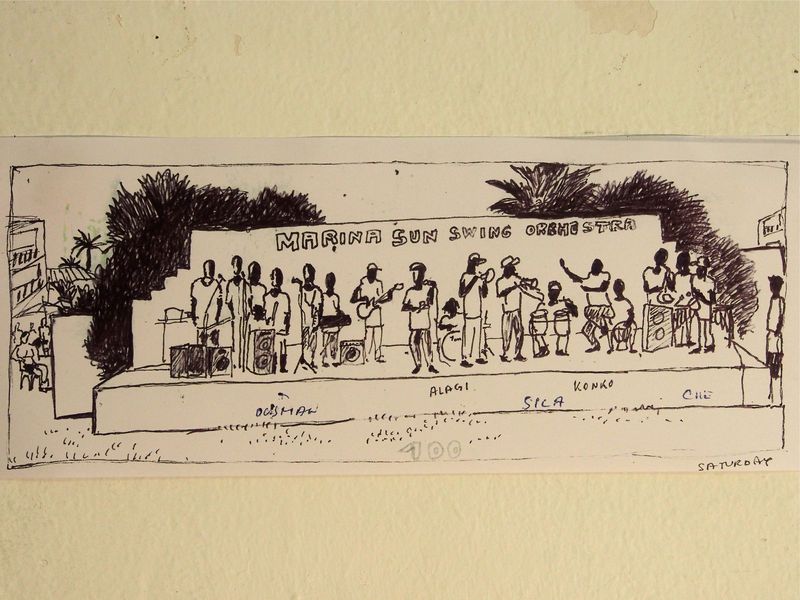 MARINA SUN SWING ORCHESTRA
ALAGI
KONKO
SILA
CHE
100
SATURDAY